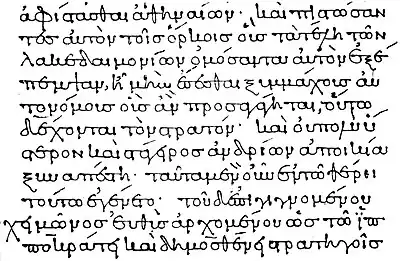 ἀφίστασθαι ἀθηναίων· καὶ πιστώσαν
τες αὐτὸν τοῖς ὅρκοις οὓς τὰ τέλη τῶν
λακεδαιμονίων ὀμόσαντα αὐτὸν ἐξέ
πεμψαν, ἦ μὴν ἔσεσθαι ξυμμάχους αὐ
τονόμους οὓς ἂν προσαγάγηται, οὕτω
δέχονται τὸν στρατόν· καὶ οὐ πολὺ ὕ
στερον καὶ στάγειρος ἀνδρίων ἀποικία
ξυναπέστη. ταῦτα μὲν οὖν ἐν τῶ θέρει
τούτω ἐγένετο. τοῦ δ' ἐπιγιγνομένου
χειμῶνος εὐθὺς ἀρχομένου ὡς τῶ ἱπ
ποκράτει καὶ δημοσθένει στρατηγοῖς